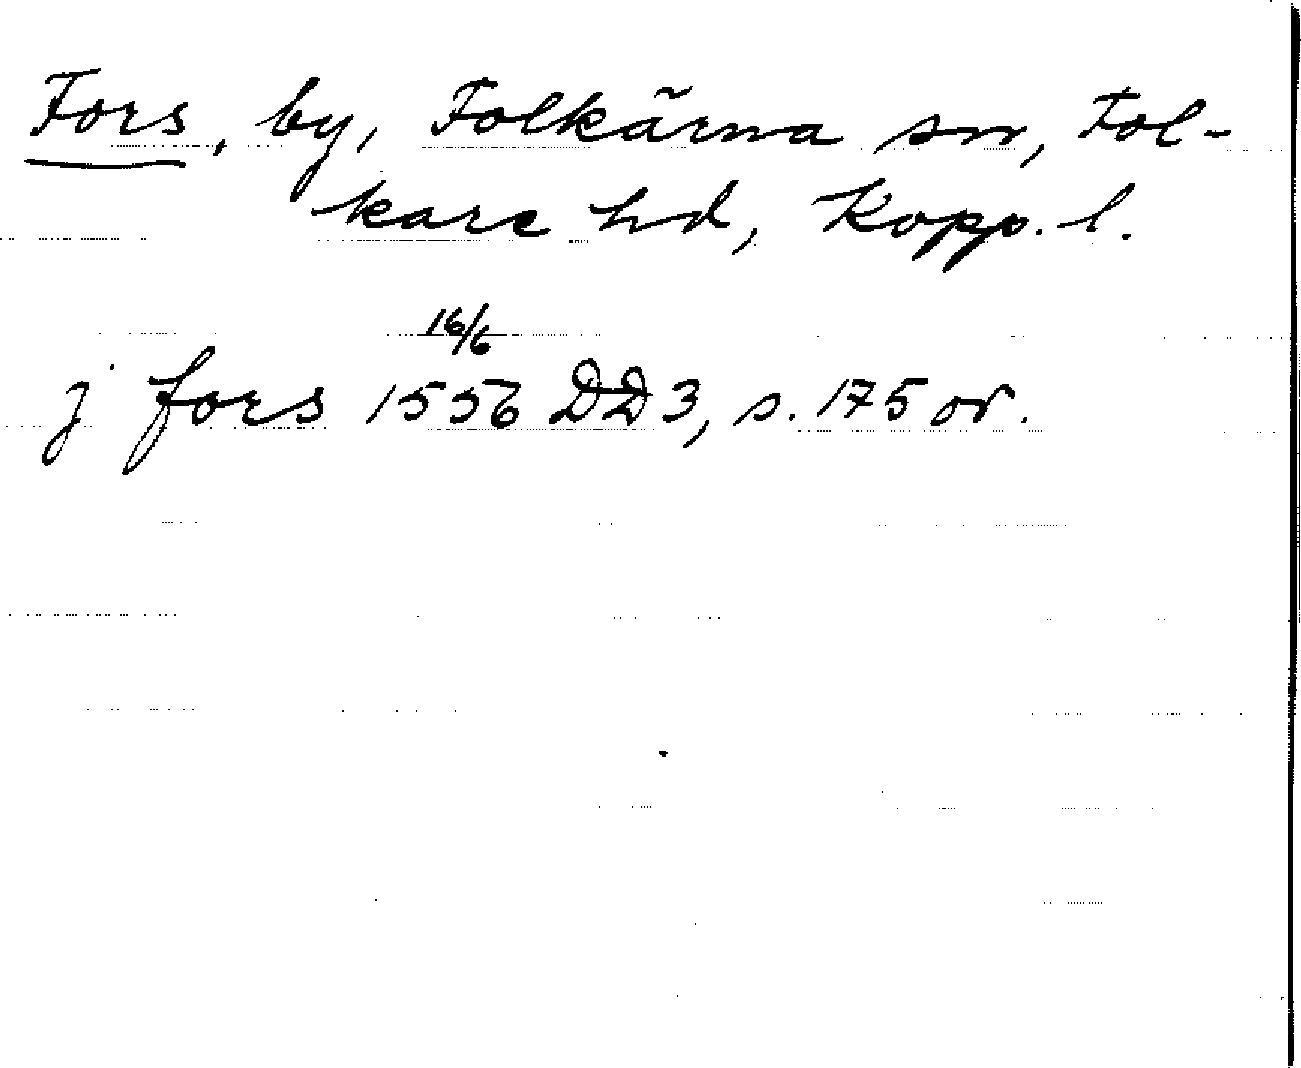 Fors, by, Folkärna sn, Fol-
kare hd, Kopp. l.
16/6
j fors 1556 DD 3, s. 175 or.